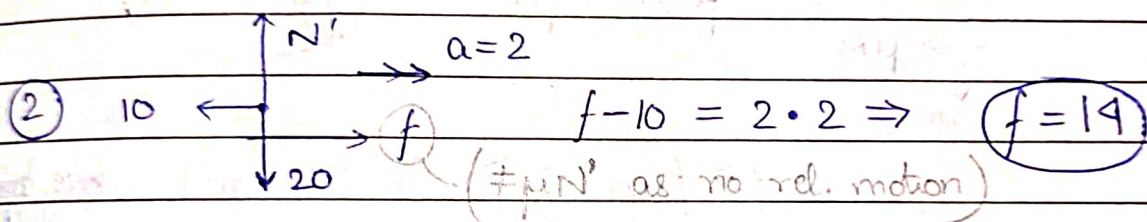 N'
a=2
② 10 f f-10 = 2•2 ⇒ f=14
20 (≠μN' as no rel. motion)